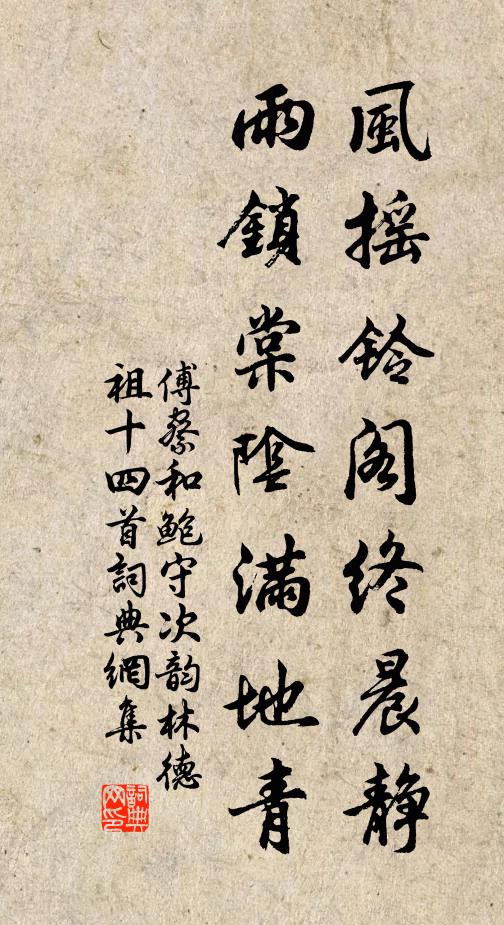 風摇鈴阁终晨静
雨鎖棠陰满地青
傅察和鲍守次韵林德
祖十四首詞典網集
詞典
网印